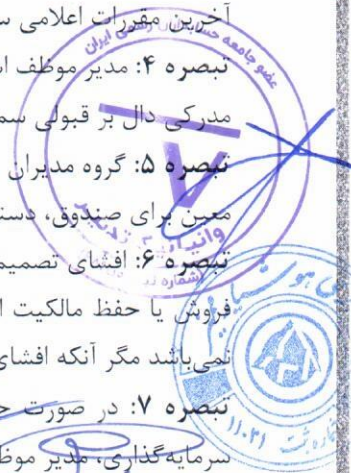 آخرین مقررات اعلامی س
تبصره ۴: مدیر موظف اس
مدرکی دال بر قبولی سم
تبصره ۵: گروه مدیران
معین برای صندوق، دست
تبصره ۶: افشای تصمیم
فروش یا حفظ مالکیت ا
نمی‌باشد مگر آنکه افشای
تبصره ۷: در صورت ح
سرمایه‌گذاری، مدیر موظ
عضو جامعه حسابداران رسمی ایران
وانیا نیک تدبیر
شماره ثبت ۱۱۰۲۱